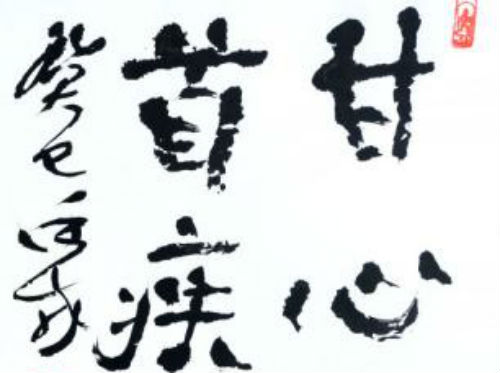 甘心
首疾
癸巳